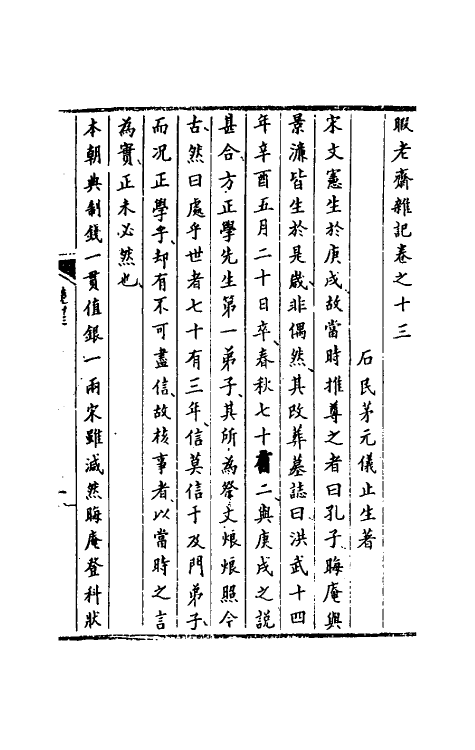 暇老齋雜記卷之十三
石民茅元儀止生著
宋文憲生於庚戌故當時推尊之者曰孔子晦庵與
景濂皆生於是歲非偶然其改葬墓誌曰洪武十四
年辛酉五月二十日卒春秋七十有二與庚戌之說
甚合方正學先生第一弟子其所為祭文烺烺照今
古然曰處乎世者七十有三年信莫信于及門弟子
而况正學乎却有不可盡信故核事者以當時之言
為實正未必然也
本朝典制錢一貫值銀一兩宋雖減然晦庵登科狀
卷十三
一